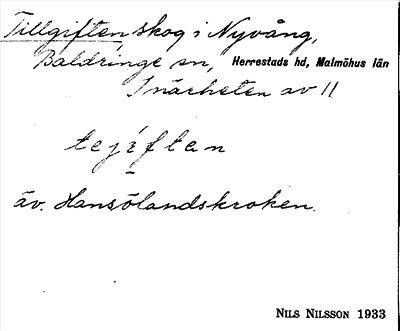 Tillgiften skog i Nyvång,
Baldringe sn, Herrestads hd, Malmöhus län
I närheten av 11
tejiften
äv. Hansölandskroken.
NILS NILSSON 1933